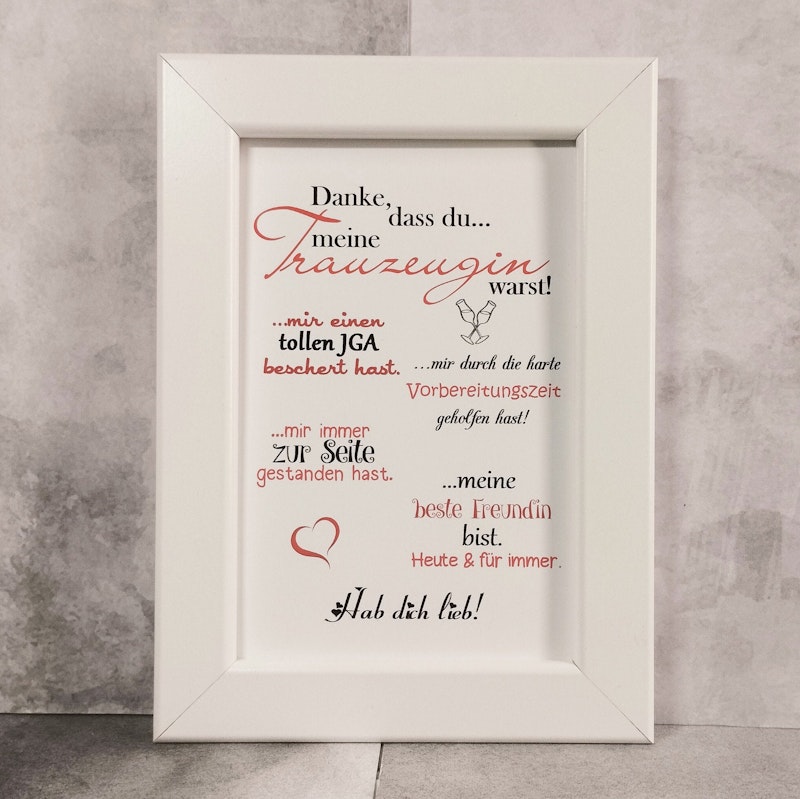 Danke,
dass du...
meine
Trauzeugin
warst!
...mir einen
tollen JGA
beschert hast.
...mir durch die harte
Vorbereitungszeit
geholfen hast!
...mir immer
zur Seite
gestanden hast.
...meine
beste Freundin
bist.
Heute & für immer.
Hab dich lieb!